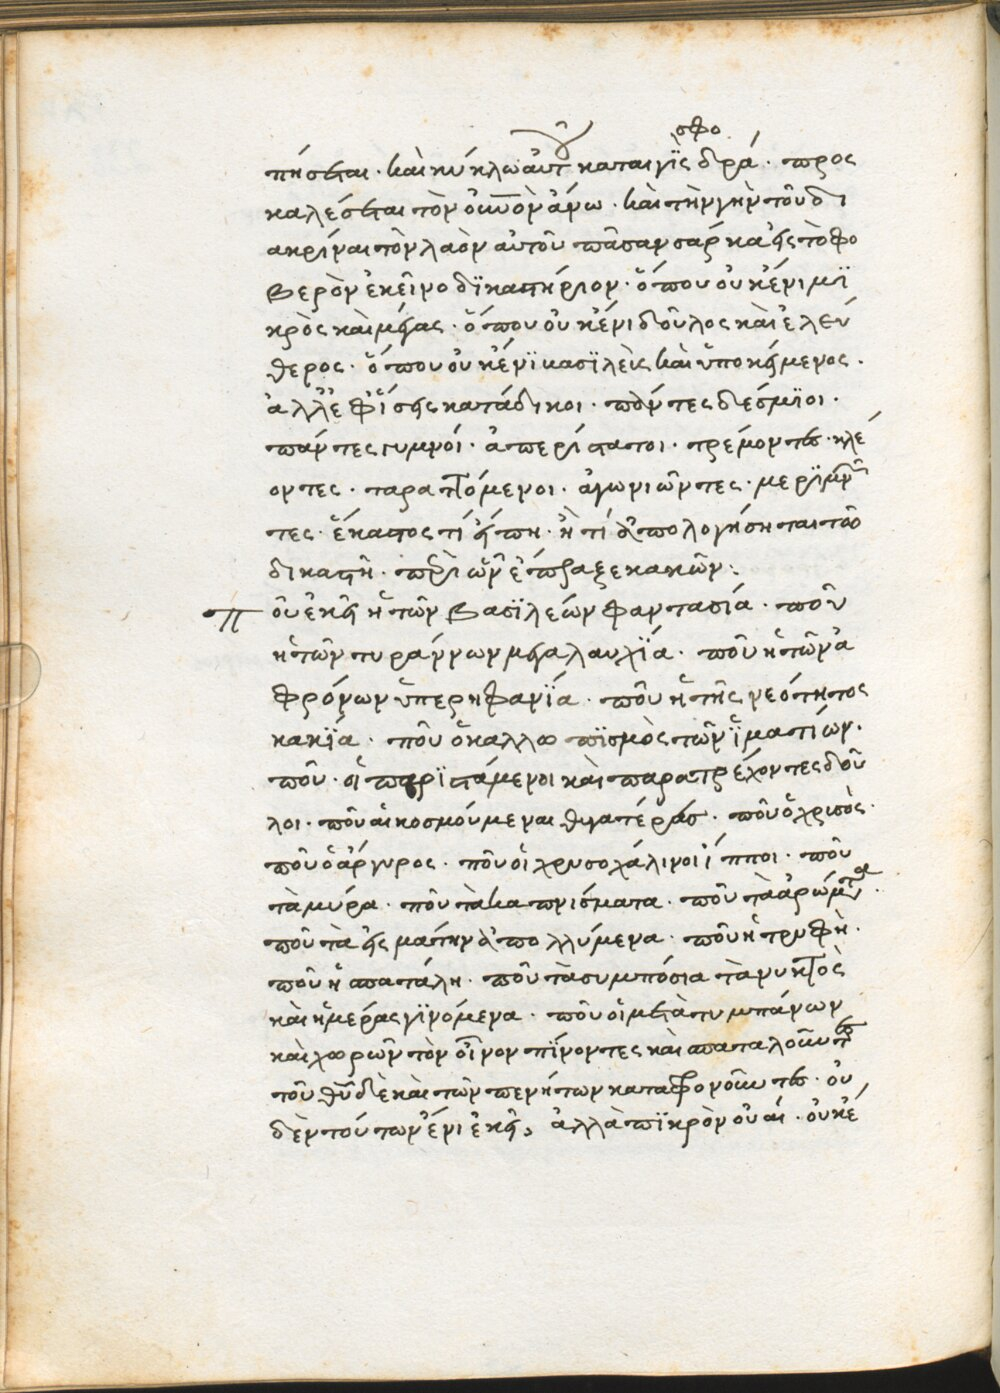 πήσεται· καὶ κύκλω αὐτοῦ καταιγῒς σφοδρά· προς
καλέσεται τὸν οὐνον ἄνω· καὶ τὴν γῆν τοῦ δι
ακρίναι τὸν λαὸν αὐτοῦ πᾶσαν σάρκα εἰς τὸ φο
βερὸν ἐκεῖνο δϊκαστήριον· ὅπου οὐκ ἔνι μϊ
κρὸς καὶ μέγας· ὅπου οὐκ ἔνι δοῦλος καὶ ἐλεύ
θερος· ὅπου οὐκ ἔνϊ βασϊλεὶς καὶ ὑποκείμενος·
ἀλλ' ἐφΐσης κατάδικοι· πάντες δεσμϊοι·
πάντες γυμνοί· ἀπερίστατοι· τρέμοντες· κλέ
οντες· ταραττόμενοι· ἀγωνιῶντες· μερϊμνῶν
τες· ἕκαστος τί εἴπη· ἢ τί ἀπολογήσηται τῶ
δικαστῆ· περὶ ὧν ἔπραξε κακῶν:
Ποῦ ἐκεῖ ἡ τῶν βασϊλεών φαντασία· ποῦ
ἡ τῶν τυράννων μεγαλαυχΐα· ποῦ ἡ τῶν ἀ
φρόνων ὑπερηφανΐα· ποῦ ἡ τῆς νεότητος
κακΐα· ποῦ ὁ καλλωπϊσμὸς τῶν ἱματίων·
ποῦ· οἱ παρϊστάμενοι καὶ παρατρέχοντες δοῦ
λοι· ποῦ αἱ κοσμούμεναι θυγατέρας· ποῦ ὁ χρισὸς·
ποῦ ὁ ἄργυρος· ποῦ οἱ χρυσοχάλινοι ἵπποι· ποῦ
τὰ μύρα· ποῦ τὰ καπνίσματα· ποῦ τὰ ἀρώματα·
ποῦ τὰ εἰς μάτην ἀπολλύμενα· ποῦ ἡ τρυφὴ·
ποῦ ἡ σπατάλη· ποῦ τὰ συμπόσια τὰ νυκτὸς
καὶ ἡμέρας γϊνόμενα· ποῦ οἱ μετὰ τυμπάνων
καὶ χωρῶν τὸν οἶνον πΐνοντες καὶ σπαταλοῦντες
τοῦ θῦ δὲ καὶ τῶν πενήτων καταφρονοῦντες· οὐ
δὲν τούτων ἔνι ἐκεῖ, ἀλλὰ πϊκρὸν οὐαί· οὐκ ἐ